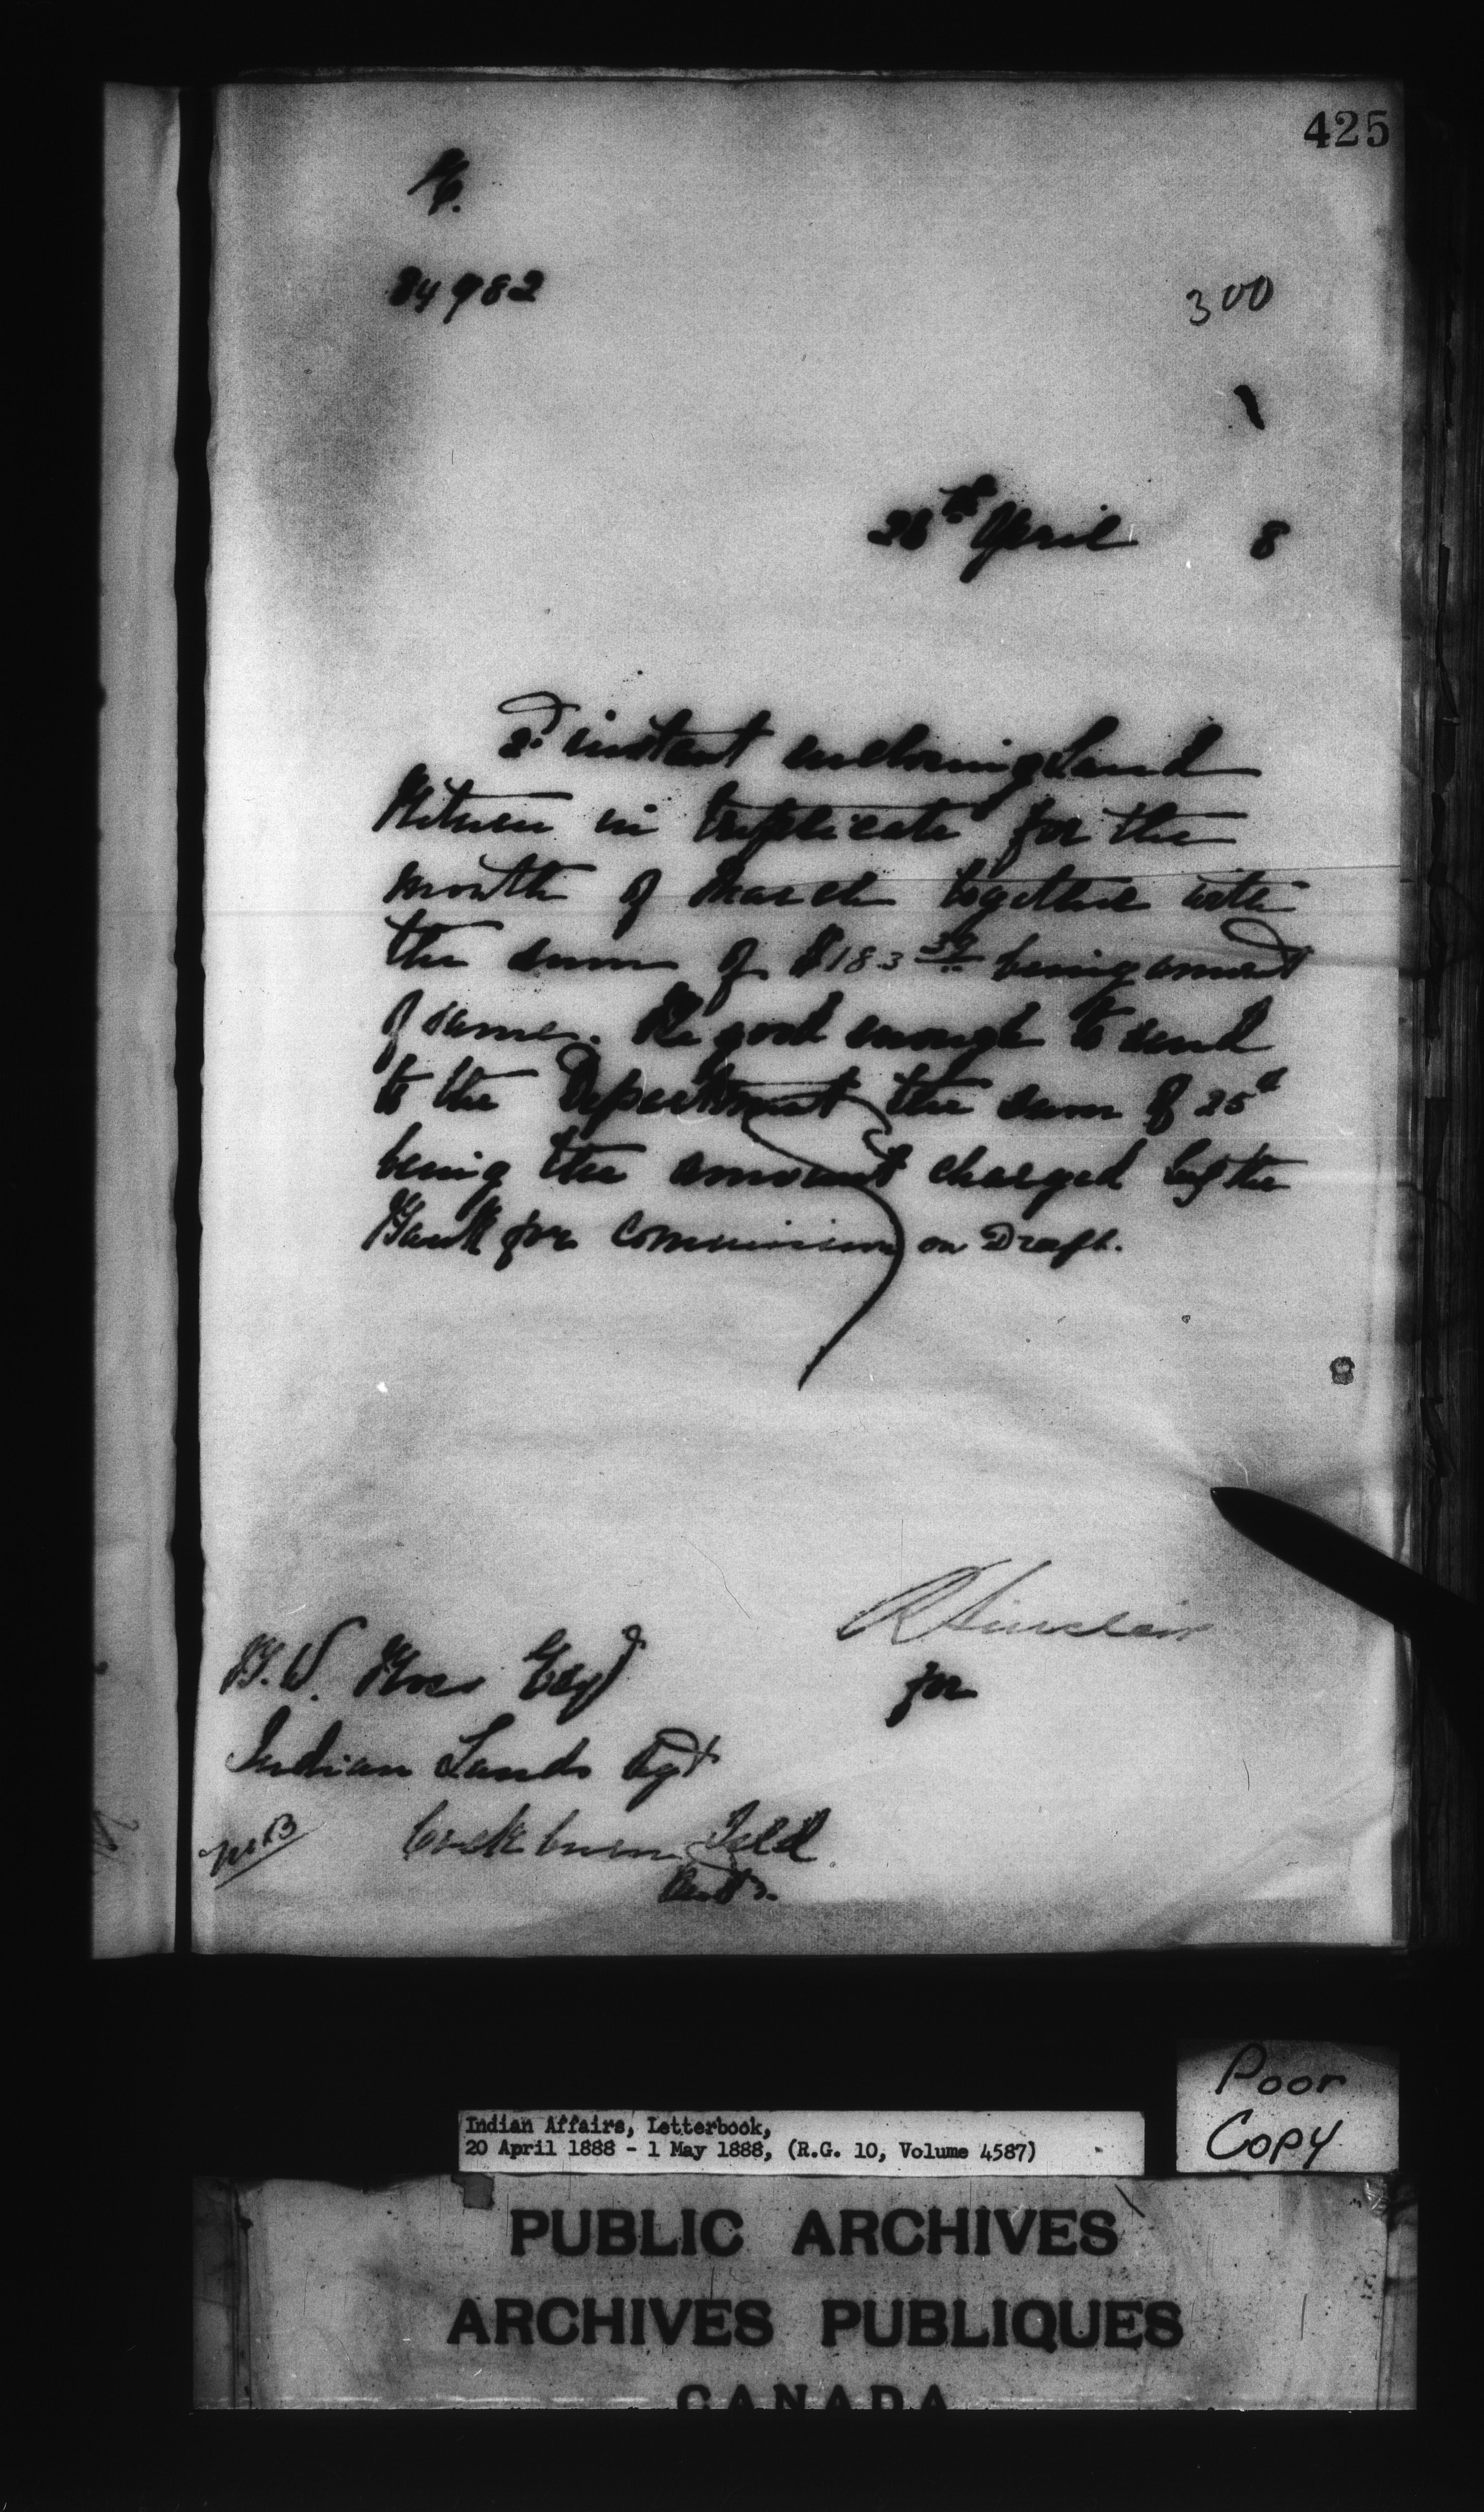 425
84982
300
28th April 8
2d instant enclosing Land
Return in triplicate for the
month of March together with
the sum of $183 39 being amount
of same. Be good enough to send
to the Department the sum of 25c
being the amount charged by the
Bank for Commission on Draft.
R Sinclair
for
B. W. Ross Esq
Indian Lands Agt
Cockburn Isld
Ont.
Poor
Copy
Indian Affairs, Letterbook,
20 April 1888 - 1 May 1888, (R.G. 10, Volume 4587)
PUBLIC ARCHIVES
ARCHIVES PUBLIQUES
CANADA